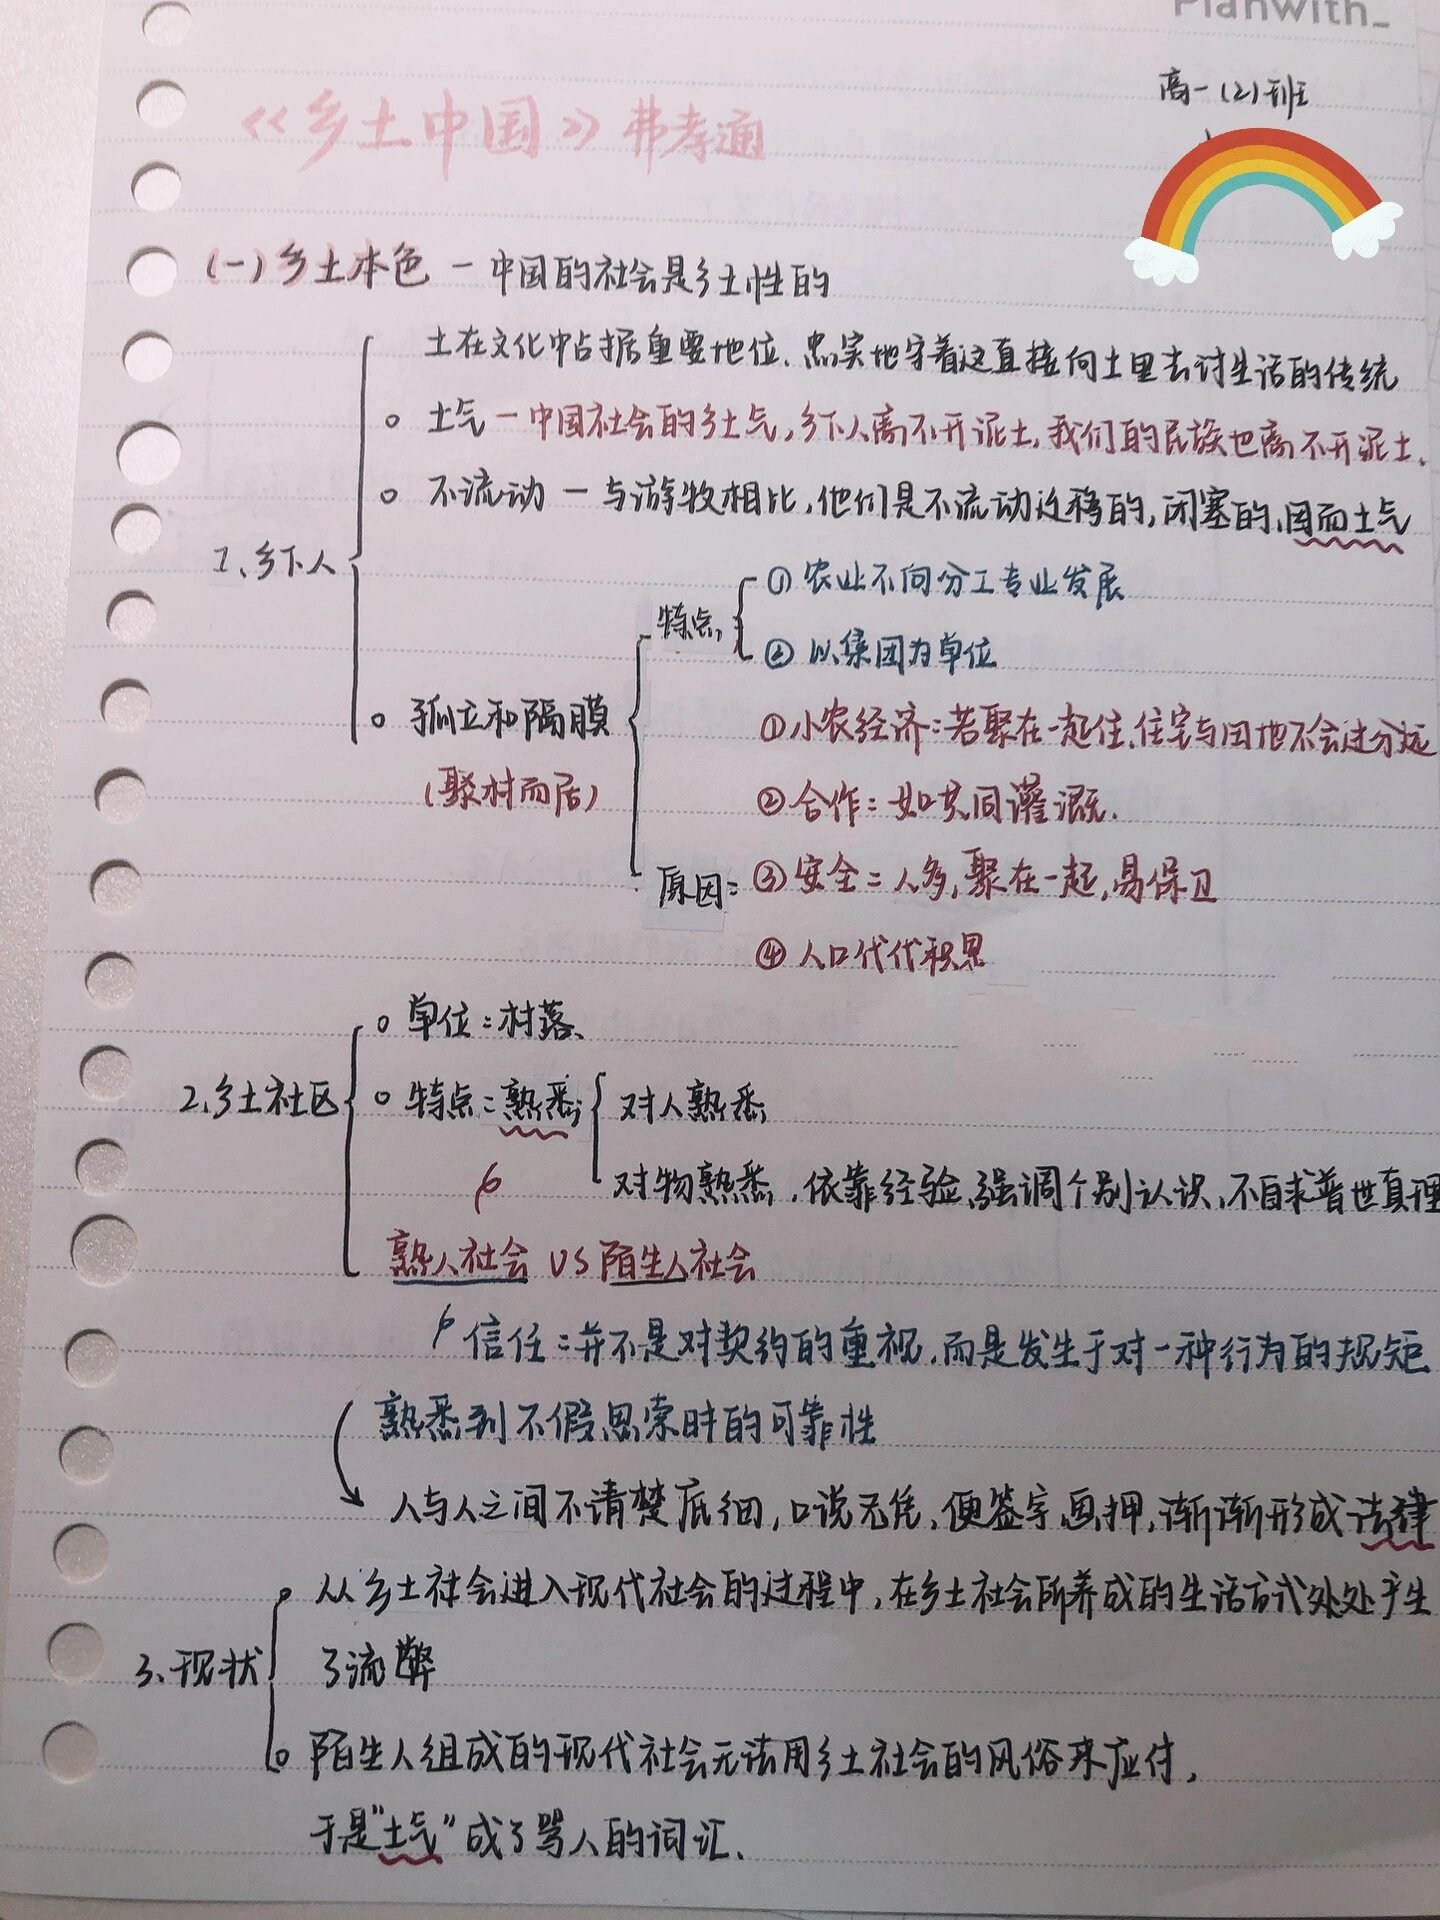 Planwith_
高一(2)班
《乡土中国》弗孝通
(一)乡土本色 — 中国的社会是乡土性的
土在文化中占据重要地位、忠实地守着这直接向土里去讨生活的传统
土气 — 中国社会的乡土气,乡下人离不开泥土,我们的民族也离不开泥土.
不流动 — 与游牧相比,他们是不流动迁移的,闭塞的,因而土气
1、乡下人
特点
①农业不向分工专业发展
②以集团为单位
孤立和隔膜
(聚村而居)
①小农经济:若聚在一起住、住宅与田地不会过分远
②合作:如共同灌溉.
原因:
③安全:人多,聚在一起,易保卫
④人口代代积累
单位:村落、
2、乡土社区
特点:熟悉
对人熟悉
对物熟悉,依靠经验,强调个别认识,不自求普世真理
熟人社会 VS 陌生人社会
信任:并不是对契约的重视,而是发生于对一种行为的规矩
熟悉到不假思索时的可靠性
人与人之间不清楚底细,口说无凭,便签字画押,渐渐形成法律
从乡土社会进入现代社会的过程中,在乡土社会所养成的生活方式处处产生
3、现状
了流弊
陌生人组成的现代社会无法用乡土社会的风俗来应付,
于是"土气"成了骂人的词汇.